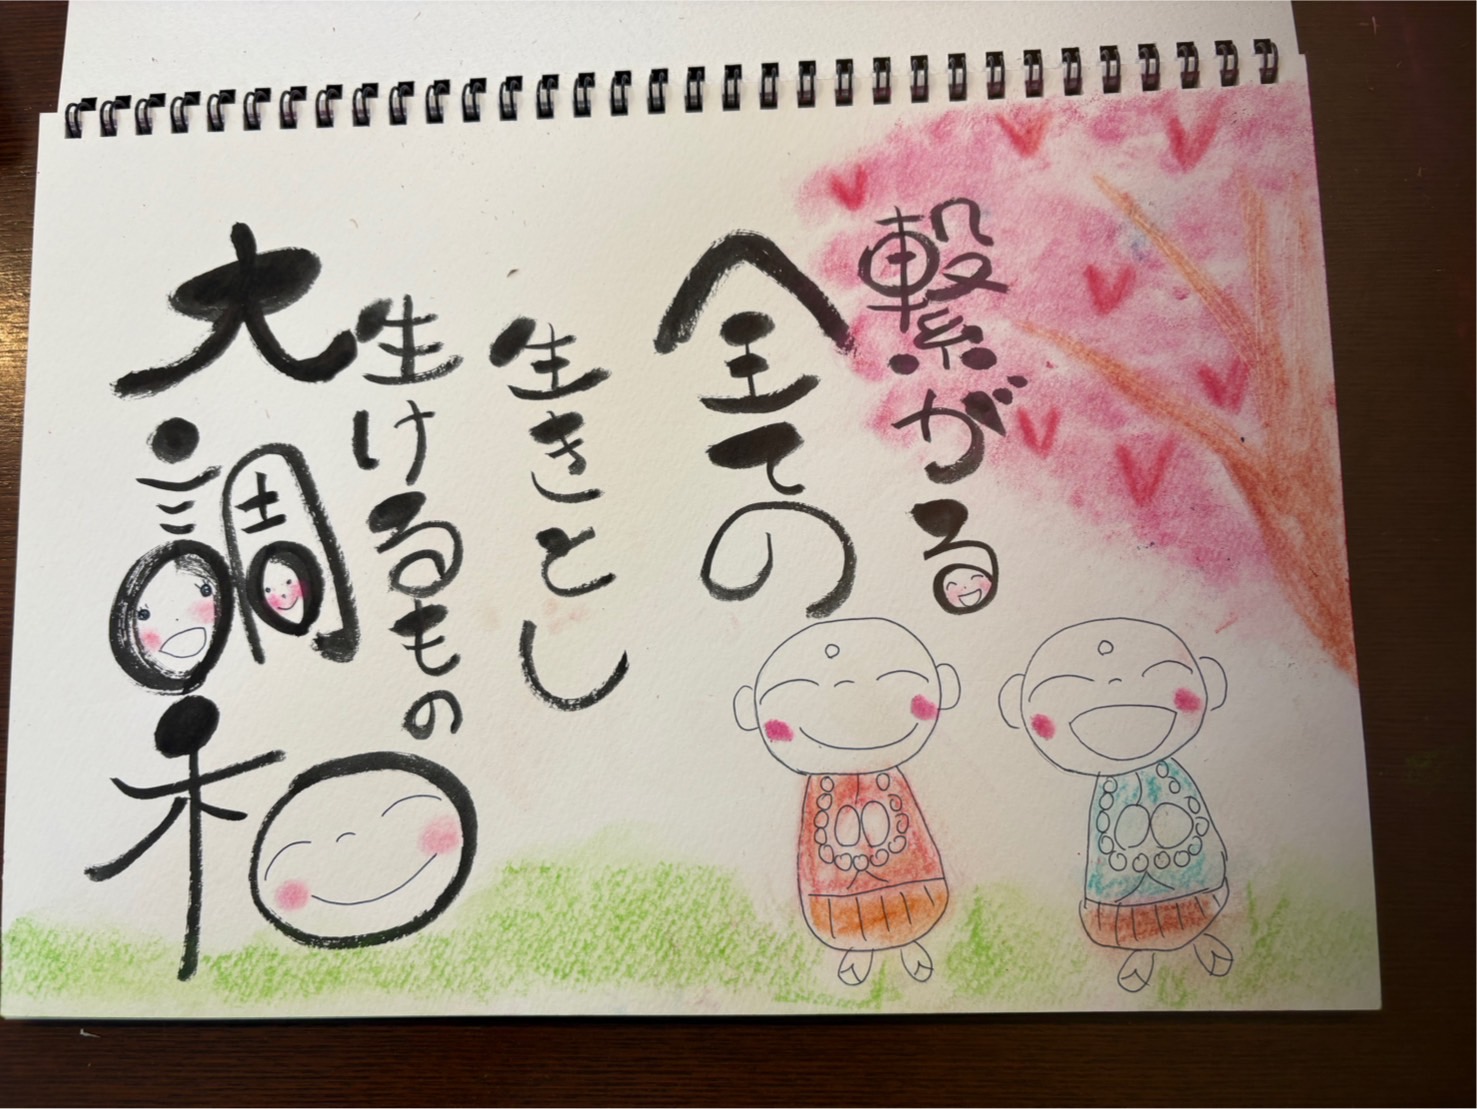 繋がる
全ての
生きとし
生けるもの
大調和